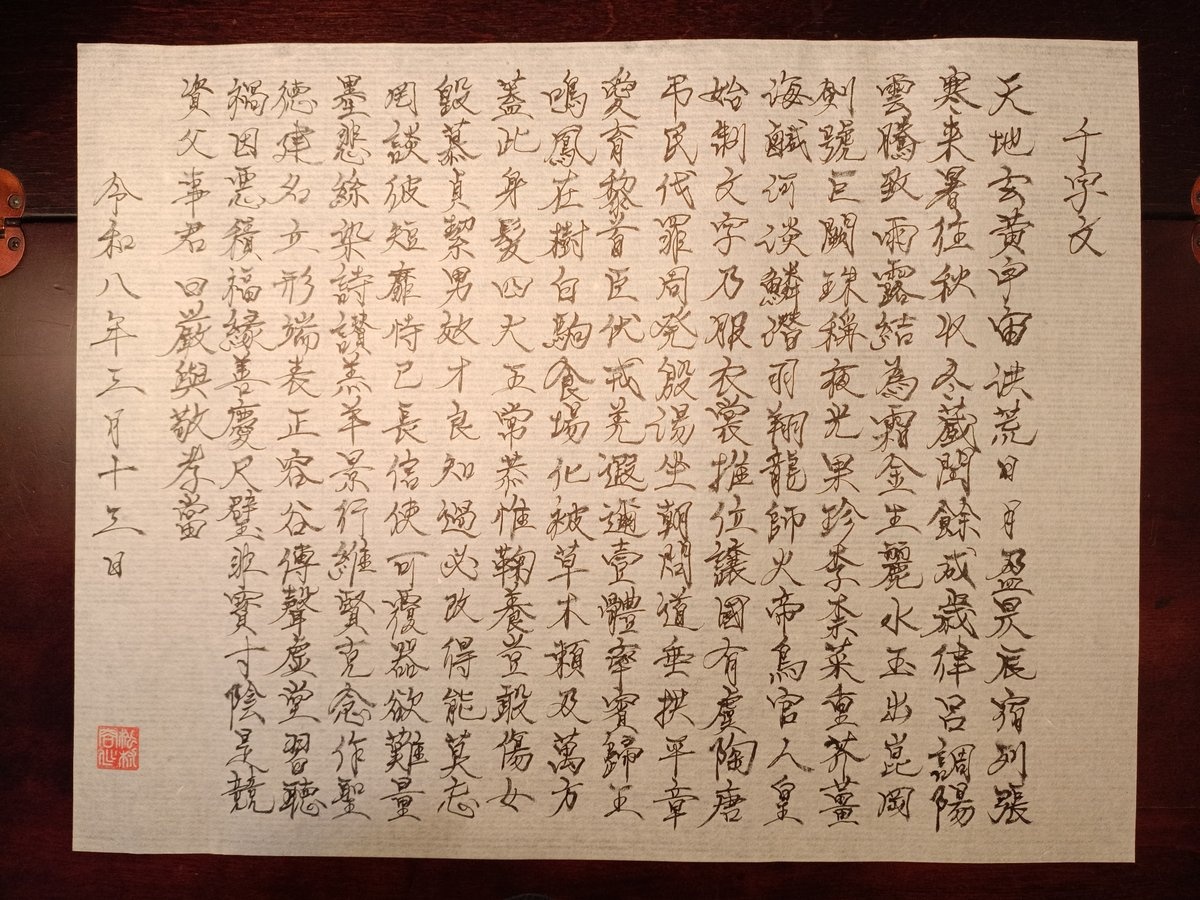 千字文
天地玄黄宇宙洪荒日月盈昃辰宿列張
寒来暑往秋収冬蔵閏餘成歳律呂調陽
雲騰致雨露結為霜金生麗水玉出崑岡
剣號巨闕珠稱夜光果珍李柰菜重芥薑
海鹹河淡鱗潜羽翔龍師火帝鳥官人皇
始制文字乃服衣裳推位譲國有虞陶唐
弔民伐罪周発殷湯坐朝問道垂拱平章
愛育黎首臣伏戎羌遐邇壹體率賓歸王
鳴鳳在樹白駒食場化被草木頼及萬方
蓋此身髪四大五常恭惟鞠養豈毀傷女
毀慕貞絜男效才良知過必改得能莫忘
罔談彼短靡恃己長信使可覆器欲難量
墨悲絲染詩讃羔羊景行維賢克念作聖
徳建名立形端表正容谷傳聲虚堂習聴
禍因悪積福縁善慶尺璧非寶寸陰是競
資父事君曰厳與敬孝當
令和八年三月十三日